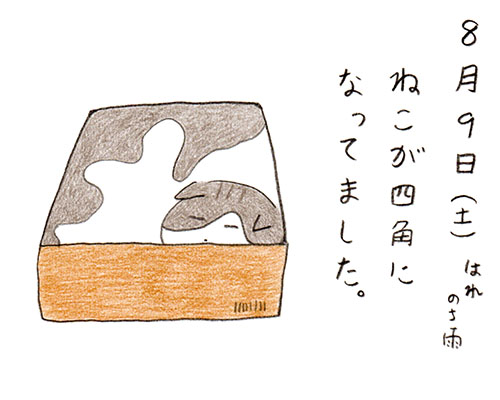 8月9日(土)はれ のち雨
ねこが四角に
なってました。